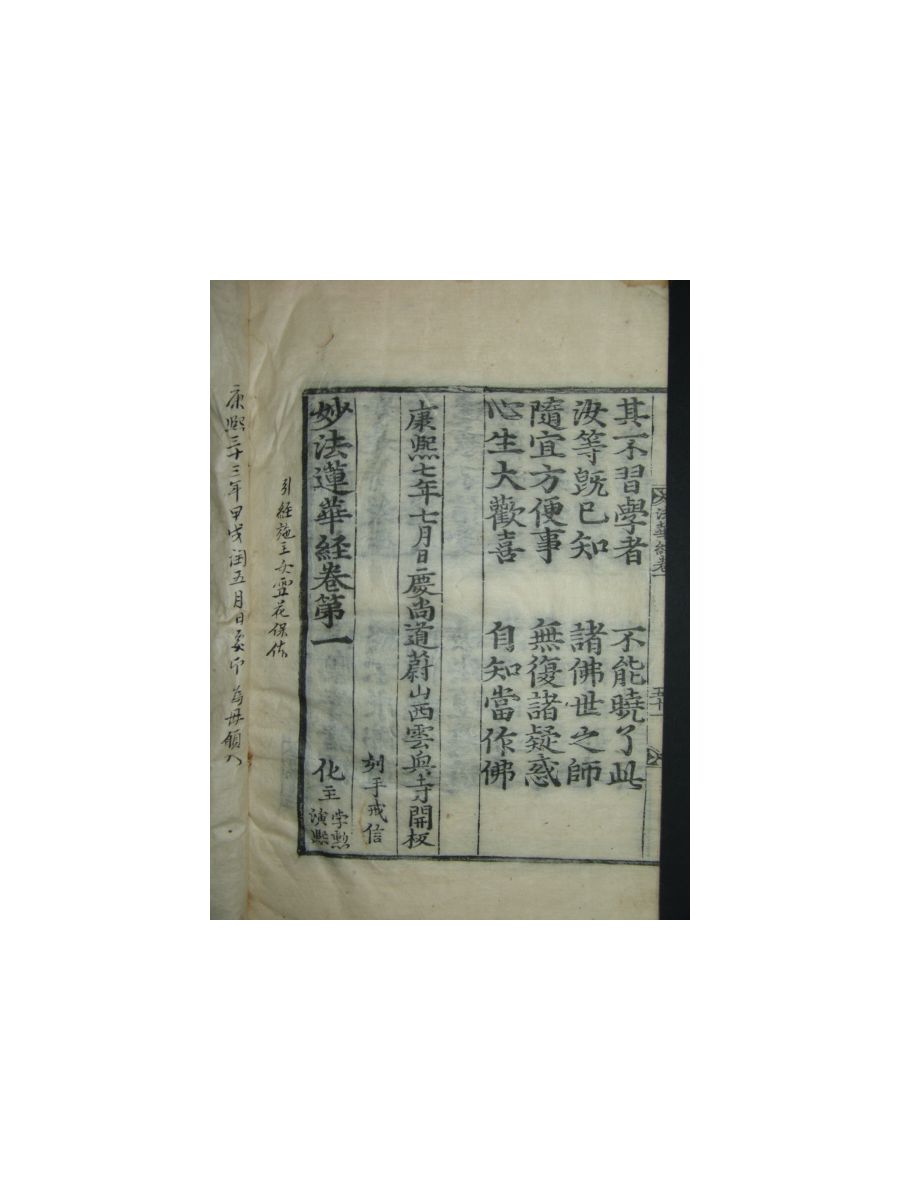 法華經卷一
五十一
其不習學者 不能曉了此
汝等旣已知 諸佛世之師
隨宜方便事 無復諸疑惑
心生大歡喜 自知當作佛
康熙七年七月日慶尚道蔚山西雲興寺開板
刻手戒信
妙法蓮華経卷第一
化主
學勲
演熙
引經施主女
花保体
康熙三十三年甲戌閏五月日
印